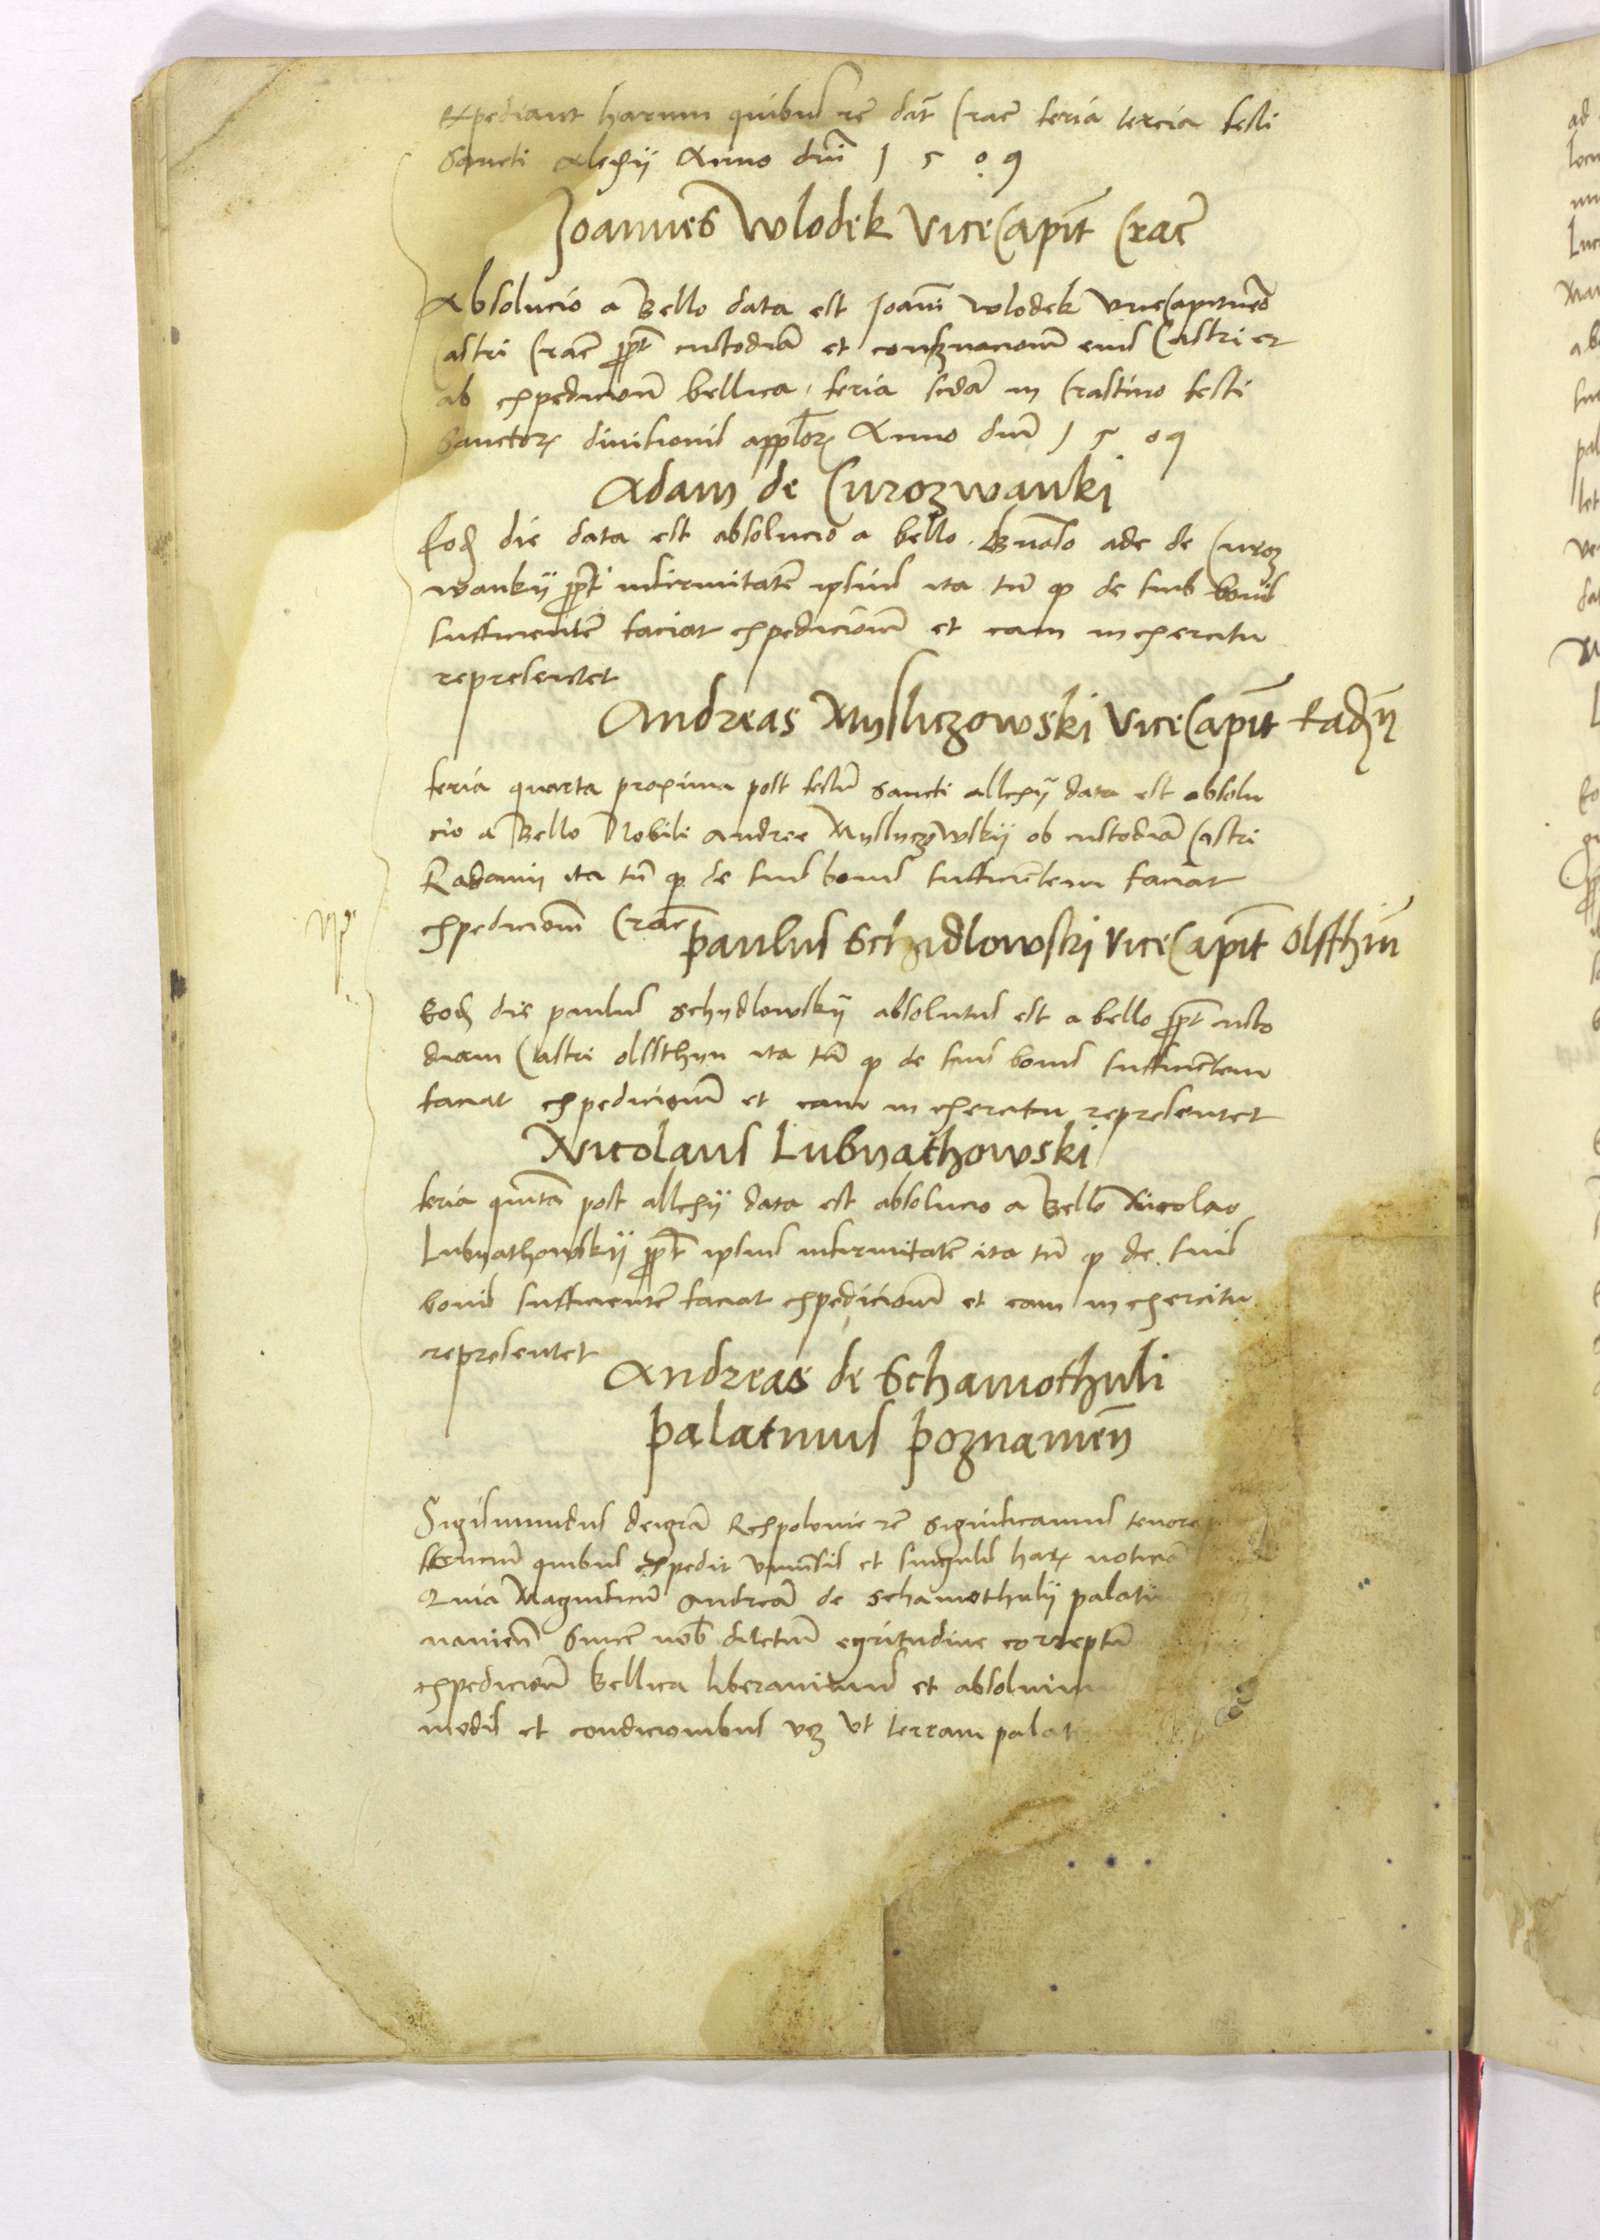 expediant harum quibus rc̄ dat̄ Crac̄ feria tercia festi
Sancti Alexii Anno dn̄i 1509
Joannes Wlodek ViceCapit̄ Crac̄
Absolucio a Bello data est Joanī Wlodek ViceCapitneo
Castri Crac̄ ꝓpt̄ custodiā et conẜuacionē eius Castri et
ab expedicionē bellica feria scdā in Crastino festi
Sanctoꝝ divisionis appl̄oꝝ Anno dnī 1509
Adam de Curozwanki
Eodꝫ die data est absolucio a bello ade de Curoz
wankij ꝓpt̄ infirmitatē ipsius ita tn̄ ꝙ de suis bonis
sufficientē faciat expedicionē et eam in exercitu
representet
Andreas Mysliczowski ViceCapit̄ Radꝫn̄
feria quarta proxima post festū Sancti allexij data est absolu
cio a Bello Nobili Andree Myslyczowskij ob custodiā Castri
Radamij ita tn̄ ꝙ de suis bonis sufficiētem faciat
expedicionē Crac̄
paulus Schidlowski ViceCapit̄ Olsthin̄
Eodꝫ die paulus Schydlowskij absolutus est a bello ꝓpt̄ custo
diam Castri olssthyn ita tn̄ ꝙ de suis bonis sufficiētem
faciat expedicionē et eam in exercitu representet
Nicolaus Lubyathowski
feria quītā post allexij data est absolucio a Bello Nicolao
Lubyathowskij ꝓpt̄ ipsius infirmitatē ita tn̄ ꝙ de suis
bonis sufficientē faciat expedicionē et eam in exercitu
representet
Andreas de Schamothuli
palatinus poznanien̄
Sigismundus deigrā Rexpolonie rc̄ significamus tenore
sencium quibus expedit vniuersis et singulis haꝝ noticiā
Quia Magnificū Andreā de Schamothulij palati
nanien̄ Sincē nob̄ dilectū egritudine correptū
expedicionē bellica liberauimus et absoluim
modis et condicionibus vꝫ Vt terram palat